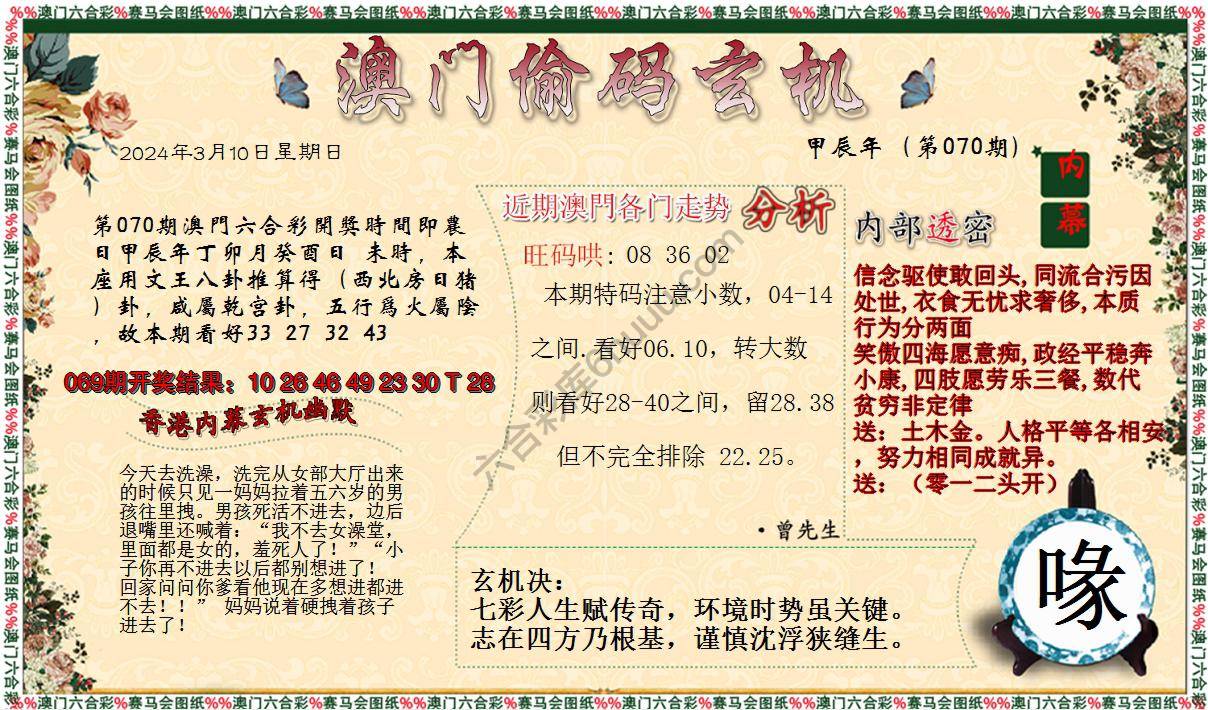 %%澳门六合彩%赛马会图纸%%澳门六合彩%赛马会图纸%%澳门六合彩%赛马会图纸%%澳门六合彩%赛马会图纸%%澳门六合彩%赛马会图纸%%澳门六合彩%赛马会图纸%%
澳门偷码玄机
2024年3月10日星期日
甲辰年（第070期）
内幕
第070期澳門六合彩開獎時間即農
日甲辰年丁卯月癸酉日 未時，本
座用文王八卦推算得（西北房日猪
）卦，咸屬乾宫卦，五行爲火屬陰
，故本期看好33 27 32 43
069期开奖结果：10 26 46 49 23 30 T 28
香港内幕玄机幽默
今天去洗澡，洗完从女部大厅出来
的时候只见一妈妈拉着五六岁的男
孩往里拽。男孩死活不进去，边后
退嘴里还喊着：“我不去女澡堂，
里面都是女的，羞死人了！”“小
子你再不进去以后都别想进了！
回家问问你爹看他现在多想进都进
不去！！” 妈妈说着硬拽着孩子
进去了！
近期澳門各门走势 分析
旺码哄: 08 36 02
本期特码注意小数，04-14
之间.看好06.10，转大数
则看好28-40之间，留28.38
但不完全排除 22.25。
·曾先生
六合彩库6huuu.com
玄机决：
七彩人生赋传奇，环境时势虽关键。
志在四方乃根基，谨慎沈浮狭缝生。
内部透密
信念驱使敢回头,同流合污因
处世,衣食无忧求奢侈,本质
行为分两面
笑傲四海愿意痴,政经平稳奔
小康,四肢愿劳乐三餐,数代
贫穷非定律
送：土木金。人格平等各相安
，努力相同成就异。
送：（零一二头开）
喙